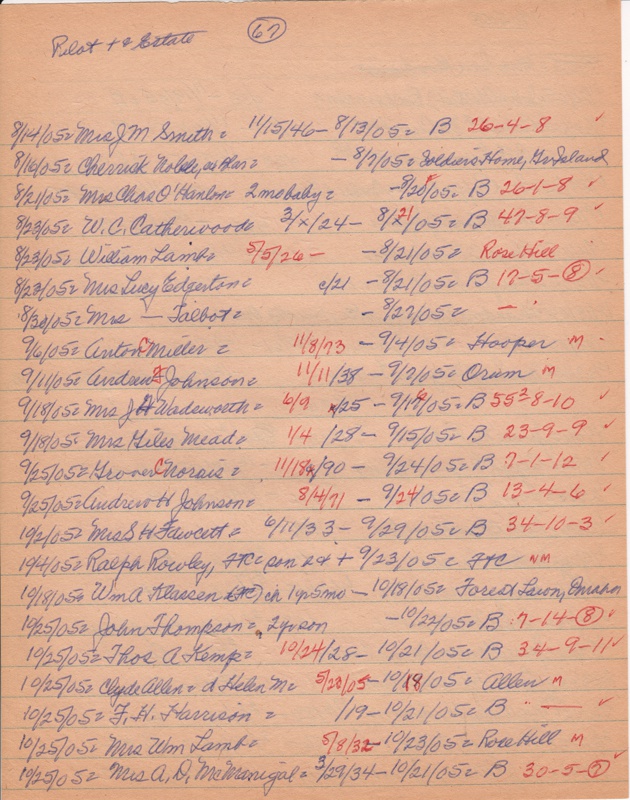 Pilot + & Estate
67
8/14/05= Mrs J M Smith= 11/15/46 - 8/13/05= B 26-4-8 ✓
8/16/05= Cherrick Nobly, - 8/7/05= Soldiers Home, Gr Island
8/21/05= Mrs Chas O'Hanlon= 2 mo baby= - 8/20/05= B 26-1-8 ✓
8/23/05= W. C. Catherwood= 3/x/24 - 8/21/05= B 47-8-9 ✓
8/23/05= William Lamb= 5/5/26 - - 8/21/05= Rose Hill
8/23/05= Mrs Lucy Edgerton= c/21 - 8/21/05= B 17-5-8 ✓
8/30/05= Mrs — Talbot= - 8/27/05= —
9/6/05= Anton C Miller= 11/8/73 - 9/4/05= Hooper M
9/11/05= Andrew J Johnson= 11/11/38 - 9/7/05= Orum M
9/18/05= Mrs J H Wadsworth= 6/9 /25 - 9/17/05= B 55²-8-10 ✓
9/18/05= Mrs Giles Mead= 1/4 /28 - 9/15/05= B 23-9-9 ✓
9/25/05= Grover C Norais= 11/18/90 - 9/24/05= B 7-1-12 ✓
9/25/05= Andrew H Johnson= 8/4/71 - 9/24/05= B 13-4-6 ✓
10/2/05= Mrs S H Fawcett= 6/11/33 - 9/29/05= B 34-10-3 ✓
10/4/05= Ralph Rowley, son + 9/23/05= NM
10/18/05= Wm A Klassen ch 1 yr 5 mo - 10/18/05= Forest Lawn, Omaha
10/25/05= John Thompson= 2 yr son - 10/22/05= B 7-14-8 ✓
10/25/05= Thos A Kemp= 10/24/28 - 10/21/05= B 34-9-11 ✓
10/25/05= Clyde Allen= d Helen M= 5/28/05 - 10/18/05= Allen M
10/25/05= F. H. Harrison= /19 - 10/21/05= B — ✓
10/25/05= Mrs Wm Lamb= 5/8/32 - 10/23/05= Rose Hill M
10/25/05= Mrs A. D. McManigal= 3/29/34 - 10/21/05= B 30-5-7 ✓